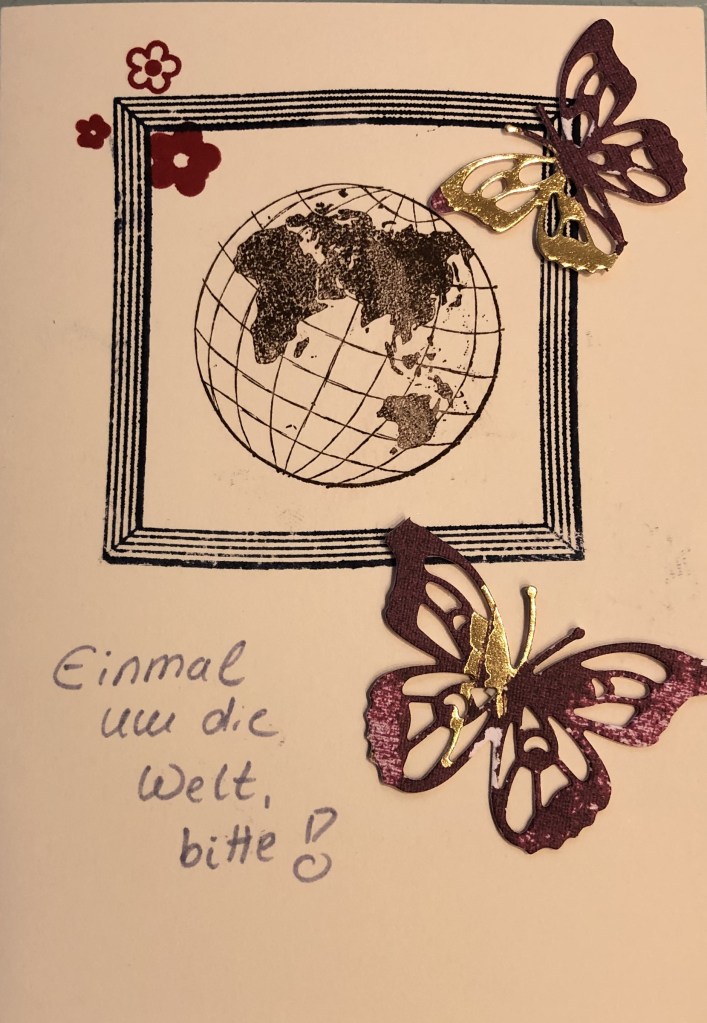 Einmal
um die
Welt,
bitte!